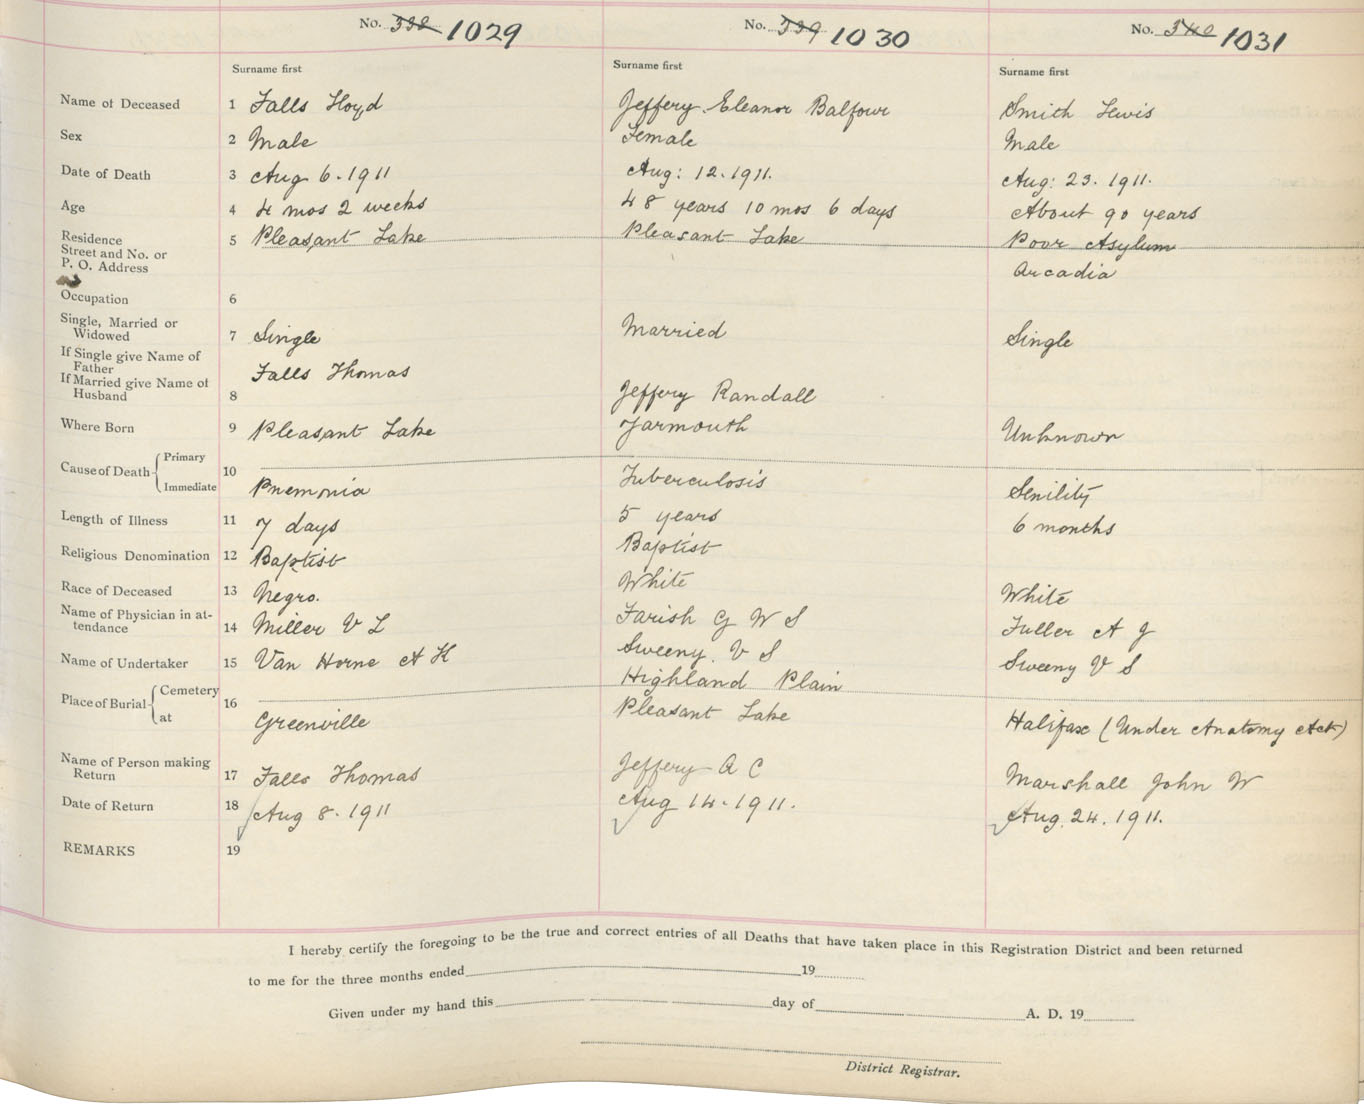 No. 338 1029 No. 339 1030 No. 340 1031
Surname first Surname first Surname first
Name of Deceased 1 Falls Lloyd Jeffery Eleanor Balfour Smith Lewis
Sex 2 Male Female Male
Date of Death 3 Aug 6. 1911 Aug: 12. 1911. Aug: 23. 1911.
Age 4 4 mos 2 weeks 48 years 10 mos 6 days About 90 years
Residence
Street and No. or
P. O. Address 5 Pleasant Lake Pleasant Lake Poor Asylum
Arcadia
Occupation 6
Single, Married or
Widowed 7 Single Married Single
If Single give Name of
Father Falls Thomas
If Married give Name of
Husband 8 Jeffery Randall
Where Born 9 Pleasant Lake Yarmouth Unknown
Cause of Death Primary
Immediate 10 Pnemonia Tuberculosis Senility
Length of Illness 11 7 days 5 years 6 months
Religious Denomination 12 Baptist Baptist
Race of Deceased 13 Negro. White White
Name of Physician in at-
tendance 14 Miller V L Farish G W S Fuller A J
Name of Undertaker 15 Van Horne A K Sweeny. V S Sweeny V S
Place of Burial Cemetery 16 Highland Plain
at Greenville Pleasant Lake Halifax (Under Anatomy Act)
Name of Person making
Return 17 Falls Thomas Jeffery A C Marshall John W
Date of Return 18 Aug 8. 1911 Aug 14. 1911. Aug. 24. 1911.
REMARKS 19
I hereby certify the foregoing to be the true and correct entries of all Deaths that have taken place in this Registration District and been returned
to me for the three months ended 19
Given under my hand this day of A. D. 19
District Registrar.